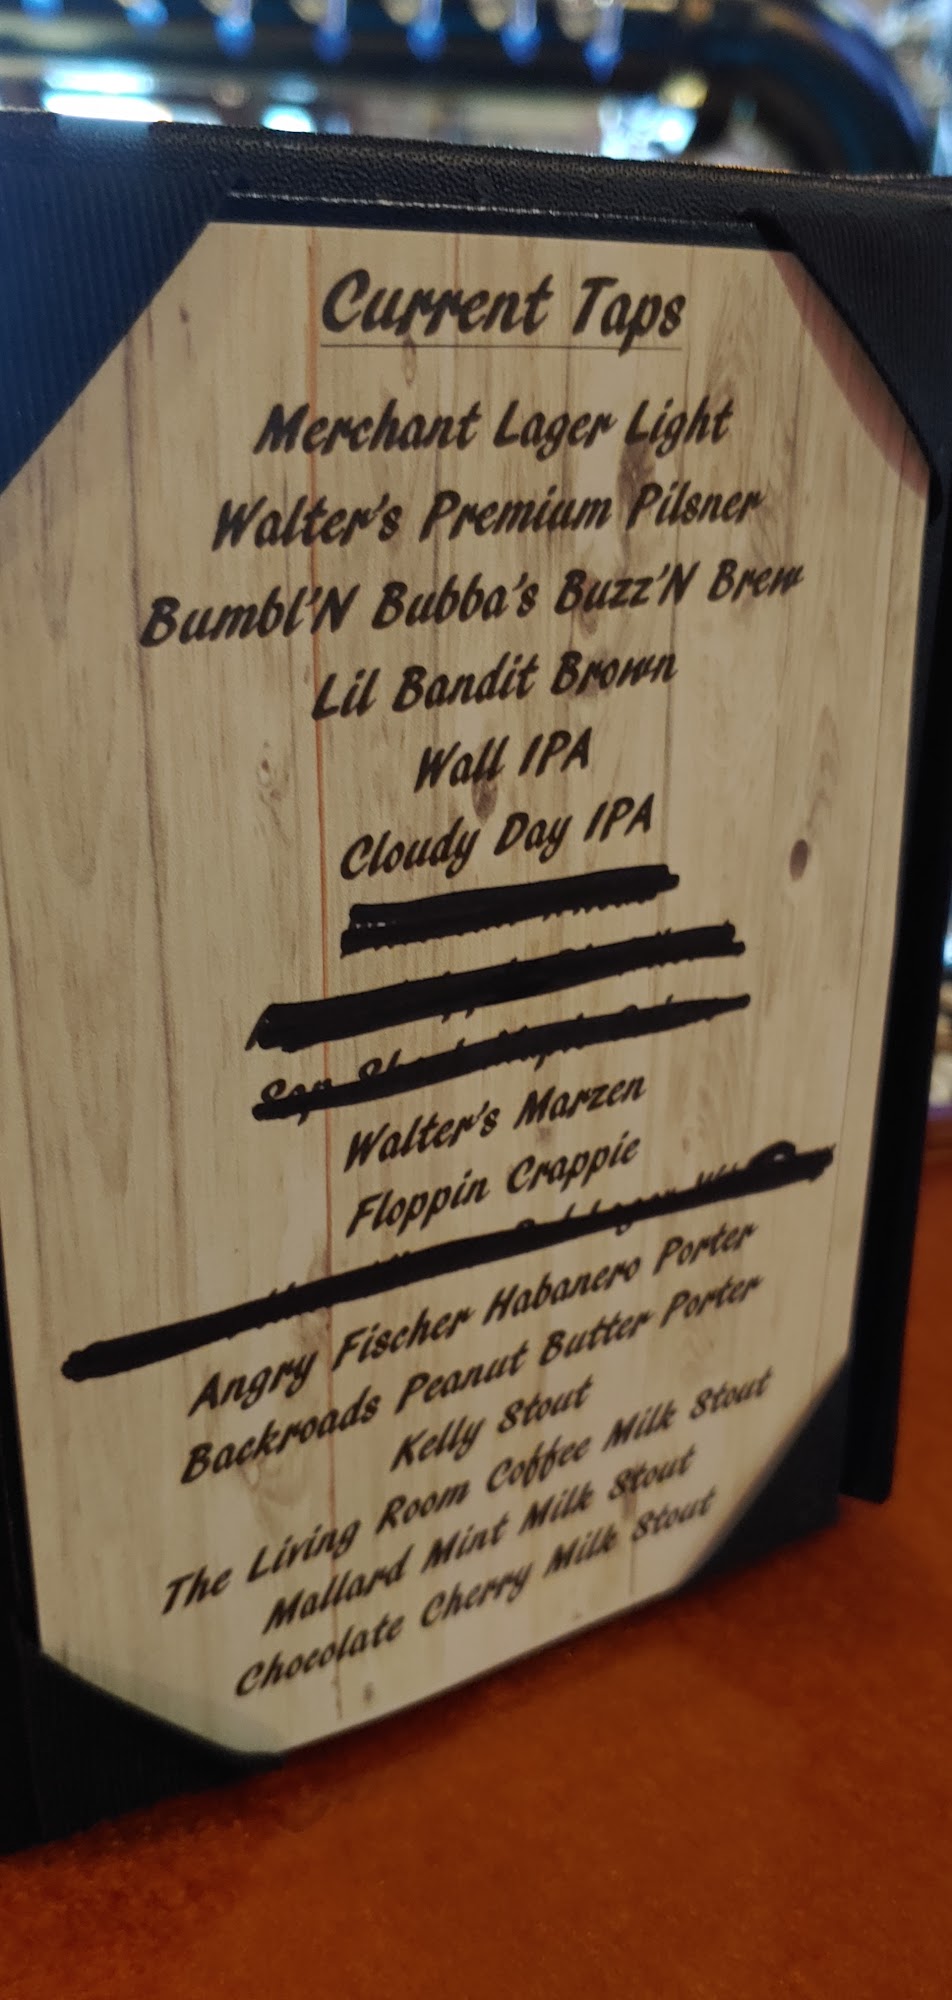 Current Taps
Merchant Lager Light
Walter's Premium Pilsner
Bumbl'N Bubba's Buzz'N Brew
Lil Bandit Brown
Wall IPA
Cloudy Day IPA
Walter's Marzen
Floppin Crappie
Angry Fischer Habanero Porter
Backroads Peanut Butter Porter
Kelly Stout
The Living Room Coffee Milk Stout
Mallard Mint Milk Stout
Chocolate Cherry Milk Stout